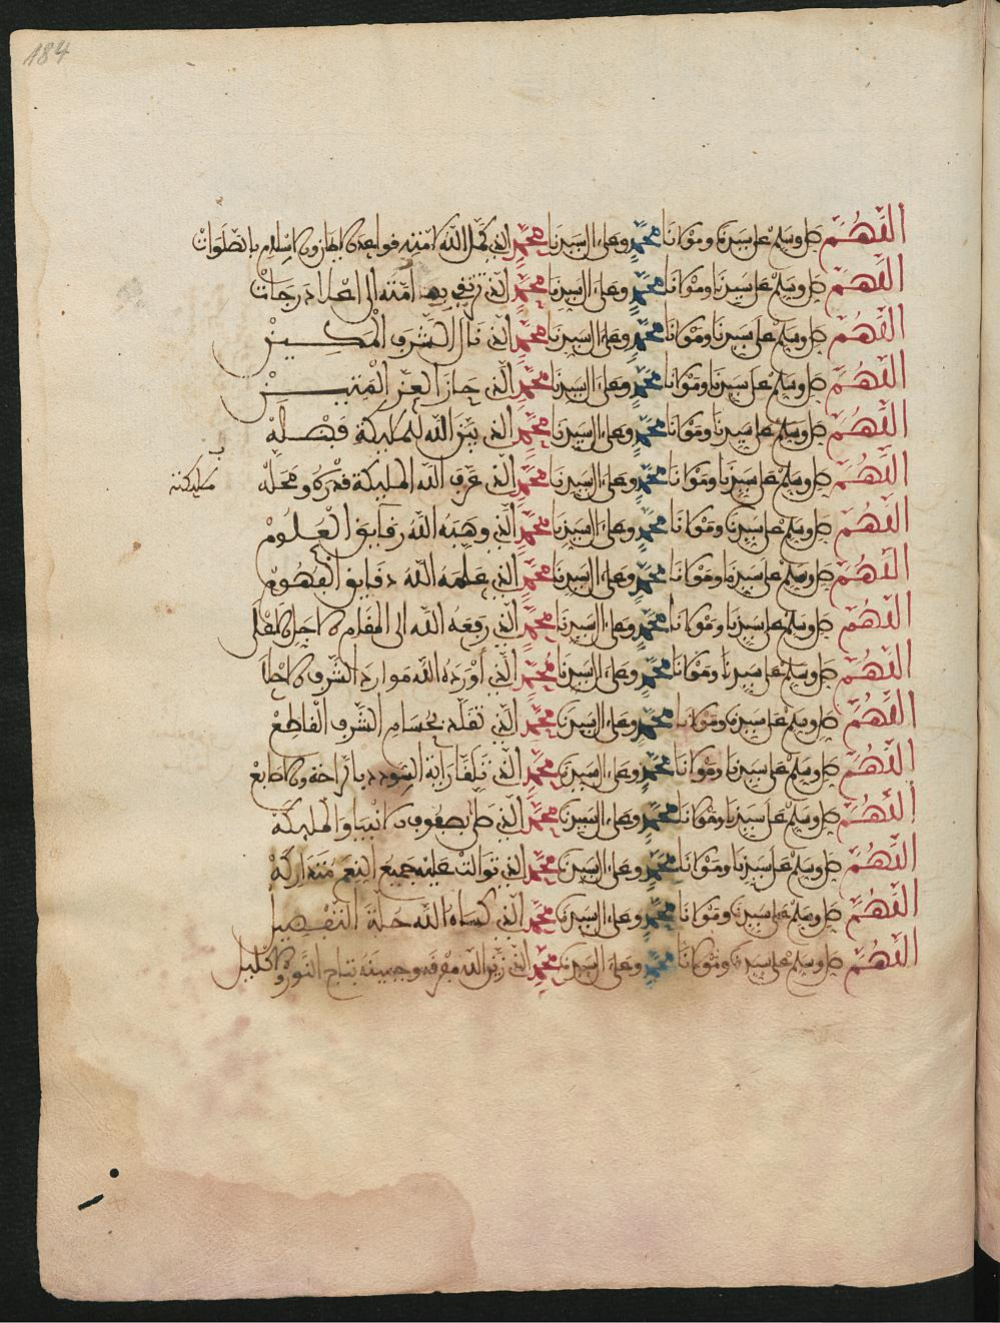 184
اللهم صل وسلم على سيدنا ومولانا محمد وعلى ال سيدنا محمد الذي كمل الله لامته قواعد الايمان والاسلام بالصلوات
اللهم صل وسلم على سيدنا ومولانا محمد وعلى ال سيدنا محمد الذي ترتقي به امته الى اعلا درجات
اللهم صل وسلم على سيدنا ومولانا محمد وعلى ال سيدنا محمد الذي نال الشرف المكين
اللهم صل وسلم على سيدنا ومولانا محمد وعلى ال سيدنا محمد الذي حاز العز المتين
اللهم صل وسلم على سيدنا ومولانا محمد وعلى ال سيدنا محمد الذي بين الله للمليكة فضله
اللهم صل وسلم على سيدنا ومولانا محمد وعلى ال سيدنا محمد الذي عرف الله المليكة قدره ومحله
ملیكته
اللهم صل وسلم على سيدنا ومولانا محمد وعلى ال سيدنا محمد الذي وهبه الله رقايق العلوم
اللهم صل وسلم على سيدنا ومولانا محمد وعلى ال سيدنا محمد الذي علمه الله دقايق الفهوم
اللهم صل وسلم على سيدنا ومولانا محمد وعلى ال سيدنا محمد الذي رفعه الله الى المقام الاجل
اللهم صل وسلم على سيدنا ومولانا محمد وعلى ال سيدنا محمد الذي اورده الله موارد الشرف الاحلا
اللهم صل وسلم على سيدنا ومولانا محمد وعلى ال سيدنا محمد الذي تقلد بحسام الشرف القاطع
اللهم صل وسلم على سيدنا ومولانا محمد وعلى ال سيدنا محمد الذي تلقا راية السودد بالراحة والاصابع
اللهم صل وسلم على سيدنا ومولانا محمد وعلى ال سيدنا محمد الذي صلى بصفوف الانبيا والمليكة
اللهم صل وسلم على سيدنا ومولانا محمد وعلى ال سيدنا محمد الذي توالت عليه جميع النعم متداركة
اللهم صل وسلم على سيدنا ومولانا محمد وعلى ال سيدنا محمد الذي كساه الله حلة التفضيل
اللهم صل وسلم على سيدنا ومولانا محمد وعلى ال سيدنا محمد الذي زين الله مفرقه وجبينه بتاج النور والاكليل